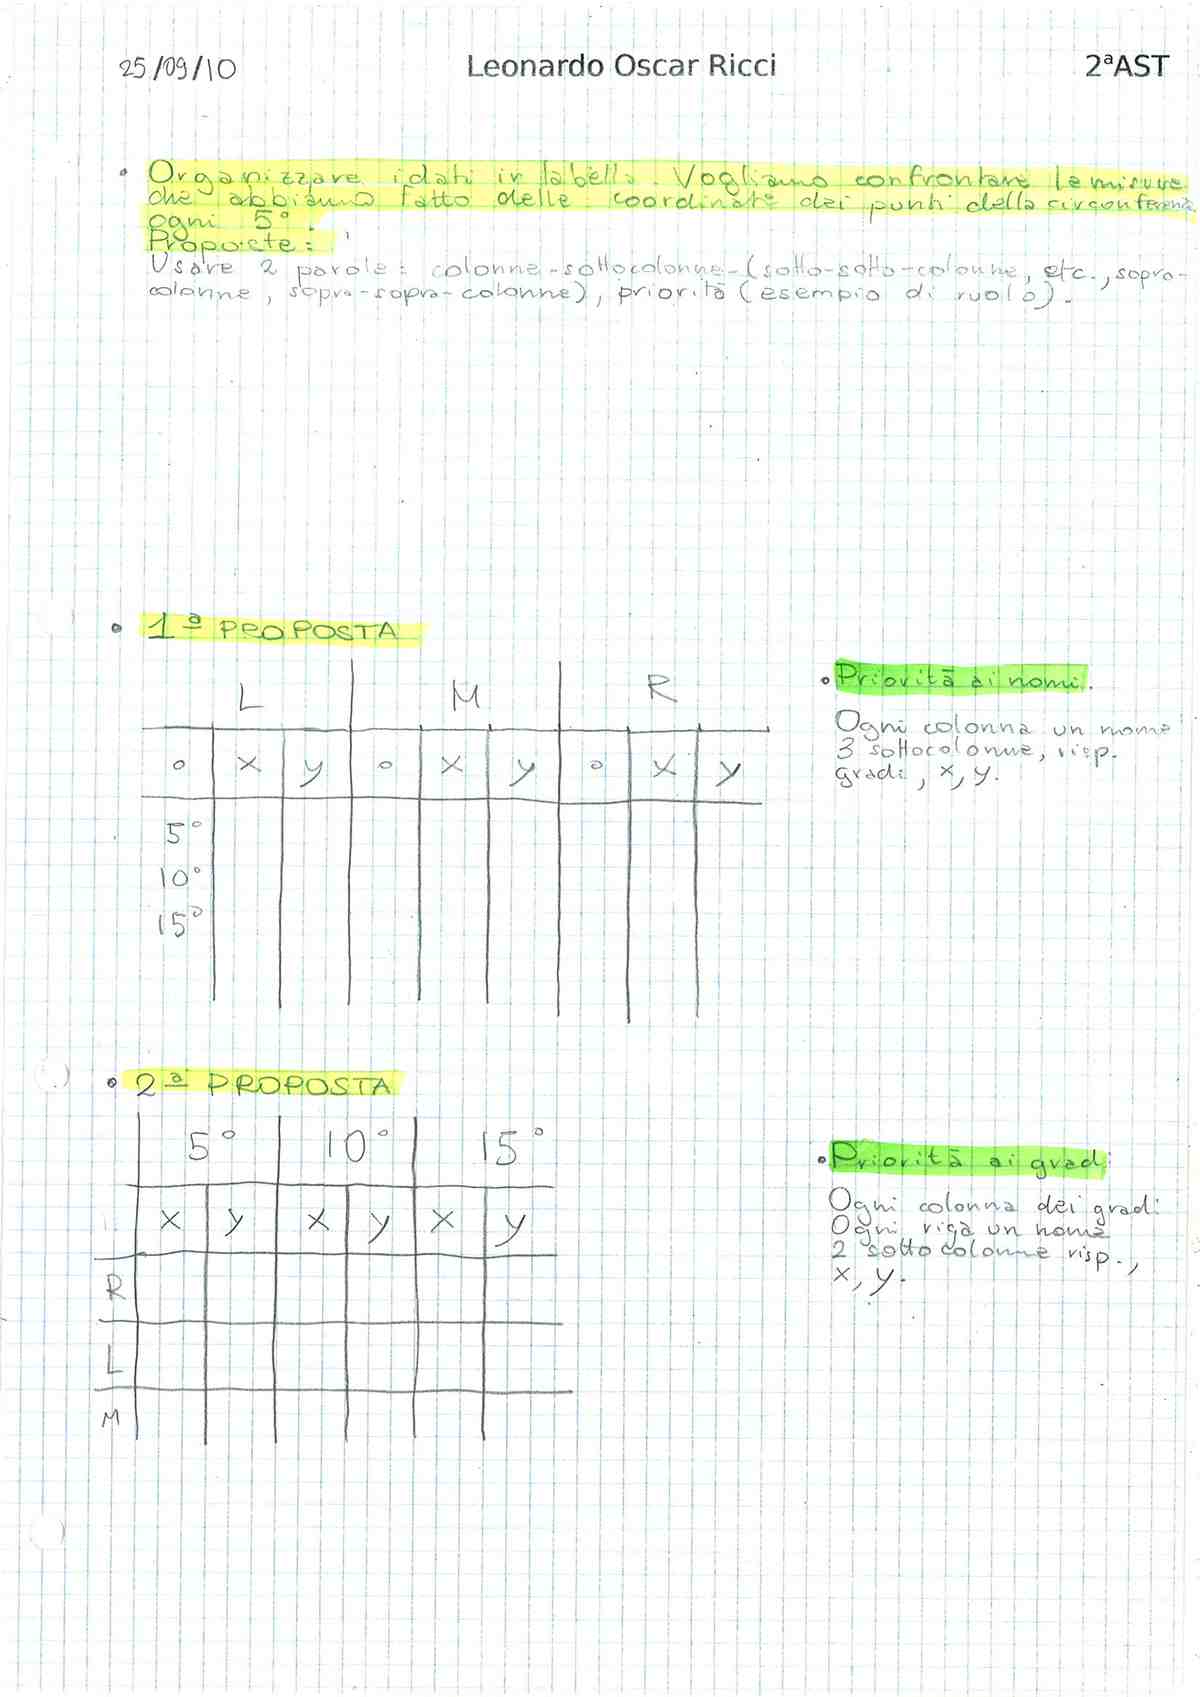 25/09/10 Leonardo Oscar Ricci 2ªAST
• Organizzare i dati in tabella. Vogliamo confrontare le misure
che abbiamo fatto delle coordinate dei punti della circonferenza
ogni 5°.
Proposte:
Usare 2 parole: colonne-sottocolonne-(sotto-sotto-colonne, etc., sopra-
colonne, sopra-sopra-colonne), priorità (esempio di ruolo).
• 1ª PROPOSTA
L M R
° x y ° x y ° x y
5°
10°
15°
• Priorità ai nomi.
Ogni colonna un nome
3 sottocolonne, risp.
gradi, x, y.
• 2ª PROPOSTA
5° 10° 15°
x y x y x y
R
L
M
• Priorità ai gradi
Ogni colonna dei gradi
Ogni riga un nome
2 sotto colonne risp.,
x, y.